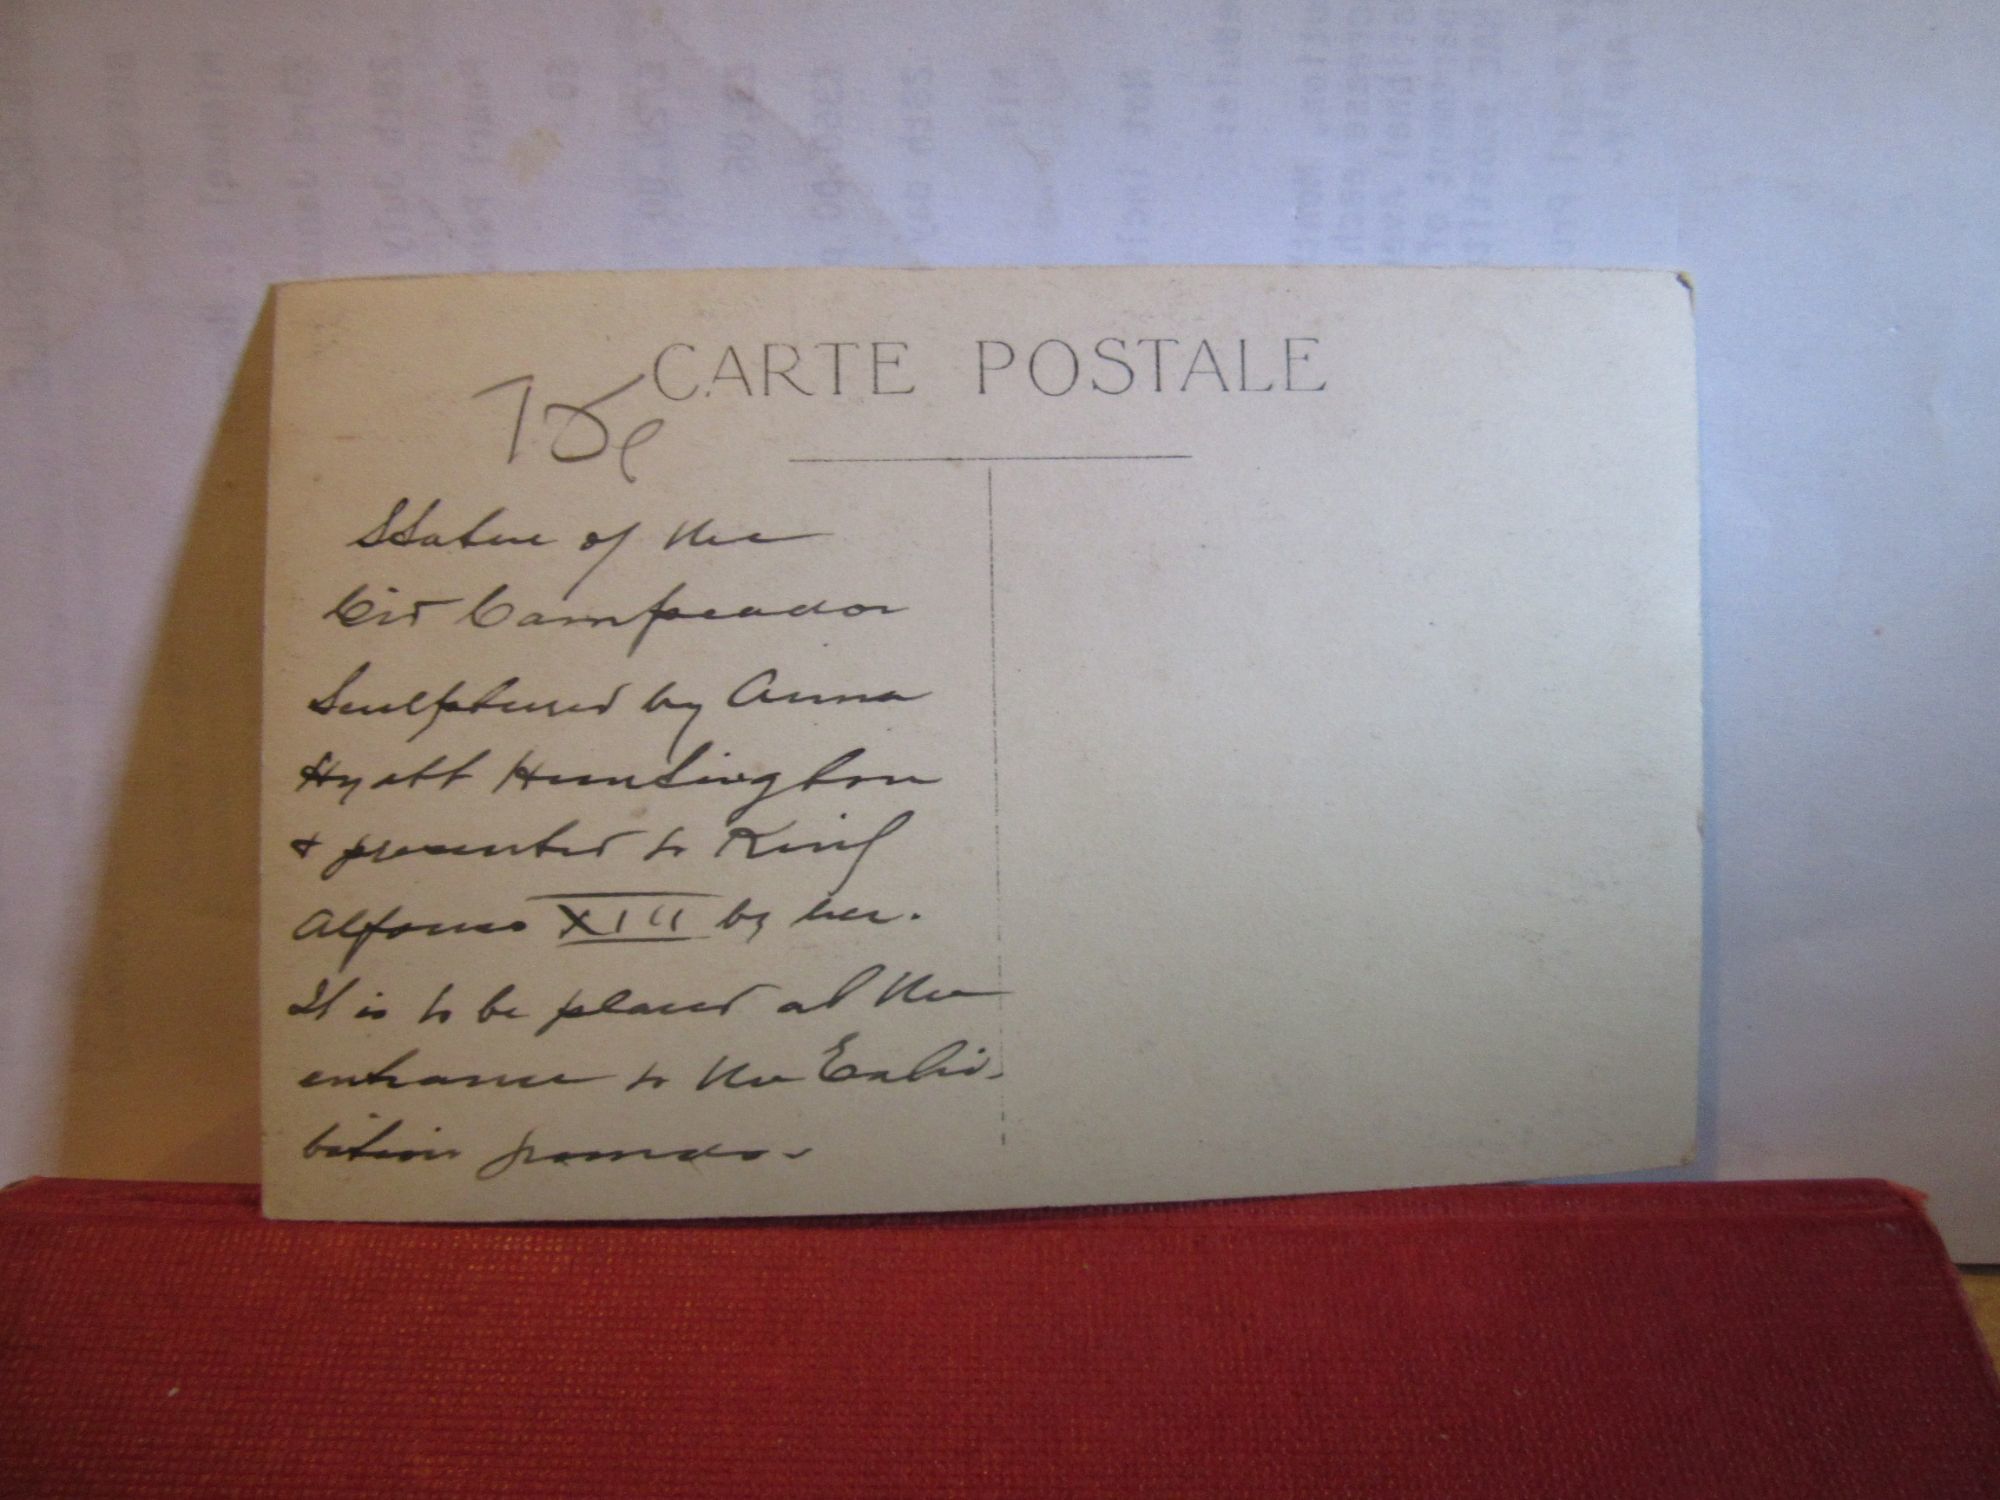 CARTE POSTALE
Statue of the
Cid Campeador
Sculptured by Anna
Hyatt Huntington
+ presented to King
Alfonso XIII by her.
It is to be placed at the
entrance to the Exhi-
bition grounds.